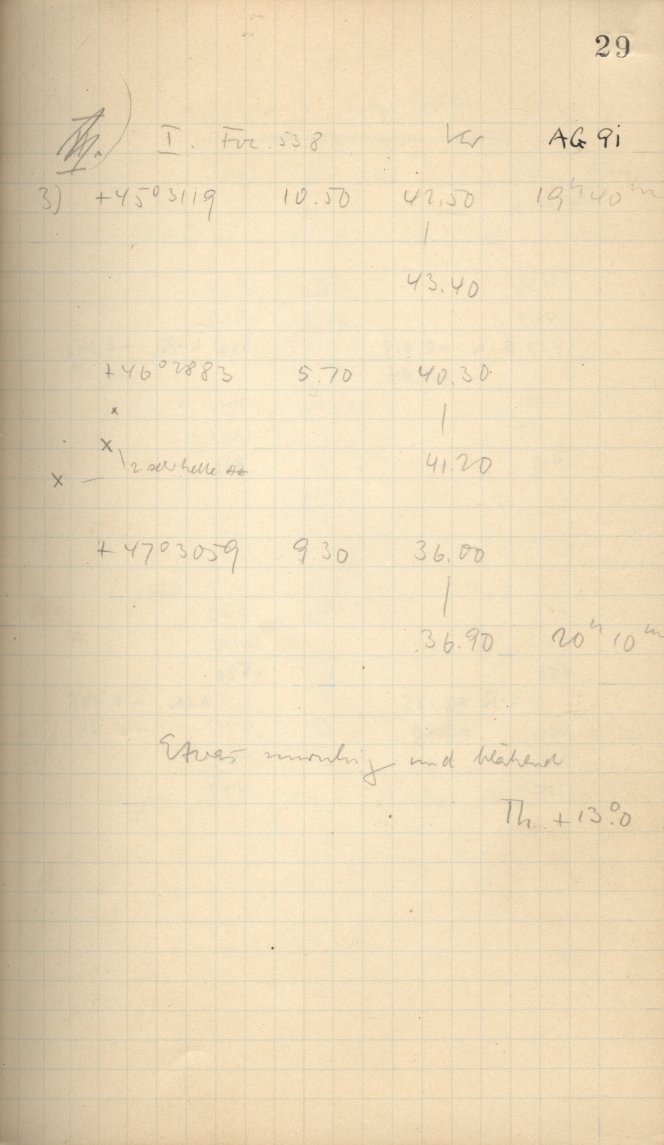 29
I. Foc. 538 AG 9i
3) +45°3119 10.50 42.50 19h40m
43.40
+46°2883 5.70 40.30
2 sehr helle
41.20
+47°3059 9.30 36.00
36.90 20h10m
Etwas unruhig und blähend
Th +13°.0